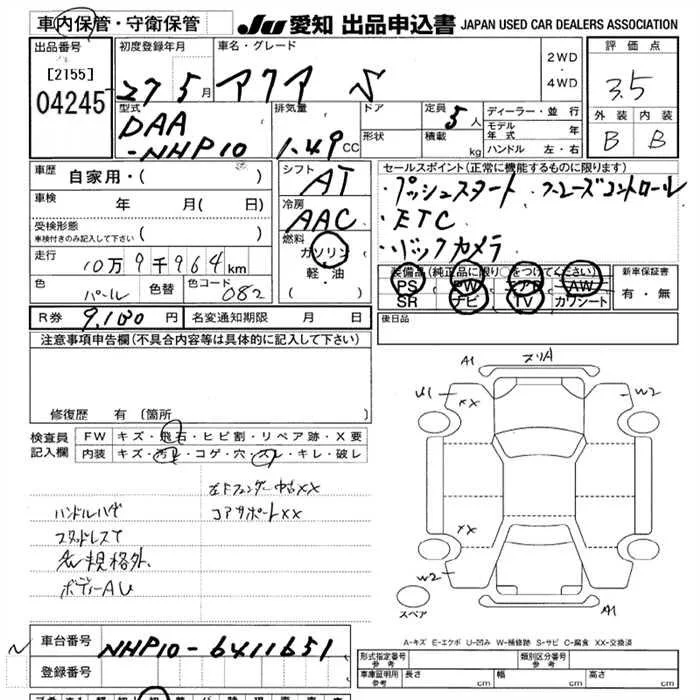 車内保管・守衛保管 JU 愛知 出品申込書 JAPAN USED CAR DEALERS ASSOCIATION
出品番号 [2155] 04245
初度登録年月 27 5月
車名・グレード アクア S
2WD・4WD
評価点 3.5
外装 内装
B B
型式 DAA-NHP10
排気量 1.49cc
ドア
形状
定員 5人
積載 kg
ディーラー・並行
モデル年式 年
ハンドル 左・右
車歴 自家用・( )
車検 年 月( 日)
受検形態
車検付きのみ記入して下さい ( )
走行 10万9千964km
色 パール 色替 色コード 082
シフト AT
冷房 AAC
燃料 ガソリン
軽・油
( )
セールスポイント(正常に機能するものに限ります)
・プッシュスタート クルーズコントロール
・ETC
・バックカメラ
装備品(純正品に限り○をつけてください)
PS PW エアB AW
SR ナビ TV カワシート
新車保証書
有・無
R券 9,100円 名変通知期限 月 日
後日品
注意事項申告欄(不具合内容等は具体的に記入して下さい)
修復歴 有 (箇所
検査員記入欄
FW キズ・飛石・ヒビ割・リペア跡・X要
内装 キズ・汚レ・コゲ・穴・スレ・キレ・破レ
左Fフェンダー中古XX
コアサポートXX
ハンドルハゲ
スタッドレスT
規格外、
ボディーAU
A1
U1 XX W2
XX
W2
A1
スペア
A-キズ E-エクボ U-凹み W-補修跡 S-サビ C-腐食 XX-交換済
車台番号 NHP10-6411651
登録番号
形式指定番号 参考
類別区分番号 参考
車庫証明用 参考 長さ cm 幅 cm 高さ cm